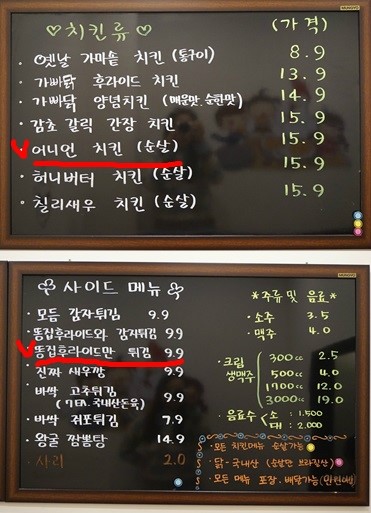 ♡치킨류♡ (가격)
· 옛날 가마솥 치킨 (통구이) 8.9
· 가빠닭 후라이드 치킨 13.9
· 가빠닭 양념치킨 (매운맛.순한맛) 14.9
· 감초 갈릭 간장 치킨 15.9
· 어니언 치킨 (순살) 15.9
· 허니버터 치킨 (순살) 15.9
· 칠리새우 치킨 (순살) 15.9
사이드 메뉴
· 모듬 감자튀김 9.9
· 똥집후라이드와 감자튀김 9.9
· 똥집후라이드만 튀김 9.9
· 진짜 새우깡 9.9
· 바싹 고추튀김 9.9
(7EA. 국내산돈육)
· 바싹 쥐포튀김 7.9
· 왕굴 짬뽕탕 14.9
· 사리 2.0
*주류 및 음료*
· 소주 3.5
· 맥주 4.0
· 크림생맥주
300cc 2.5
500cc 4.0
1700cc 12.0
3000cc 19.0
· 음료수 소 : 1.500
대 : 2.000
· 모든 치킨메뉴 순살가능
· 닭 : 국내산 (순살만 브라질산)
· 모든 메뉴 포장.배달가능